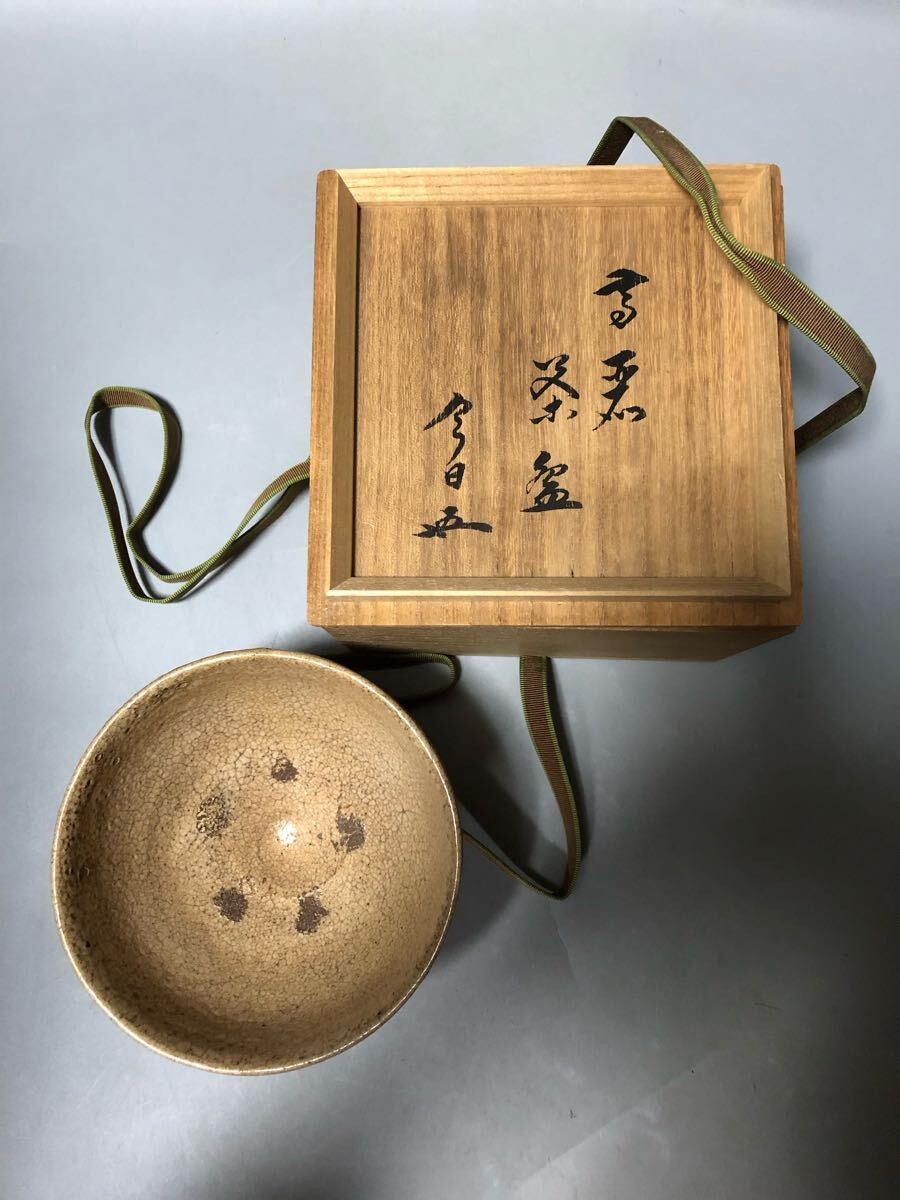 高麗
茶盌
今日庵